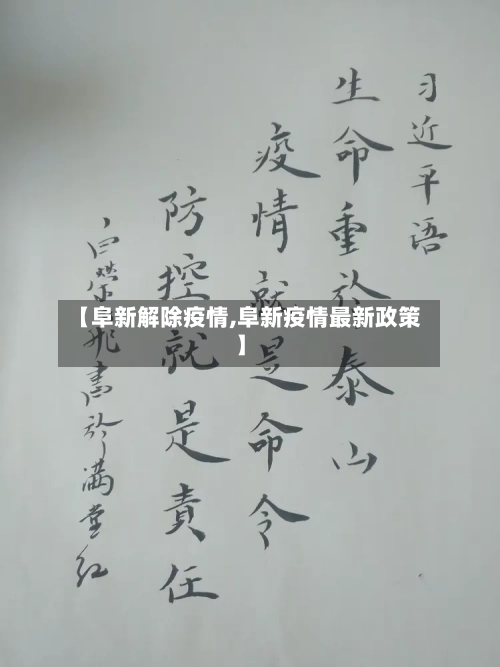 习近平语
生命重於泰山
疫情就是命令
防控就是責任
白荣飛書於满堂红
【阜新解除疫情,阜新疫情最新政策
】